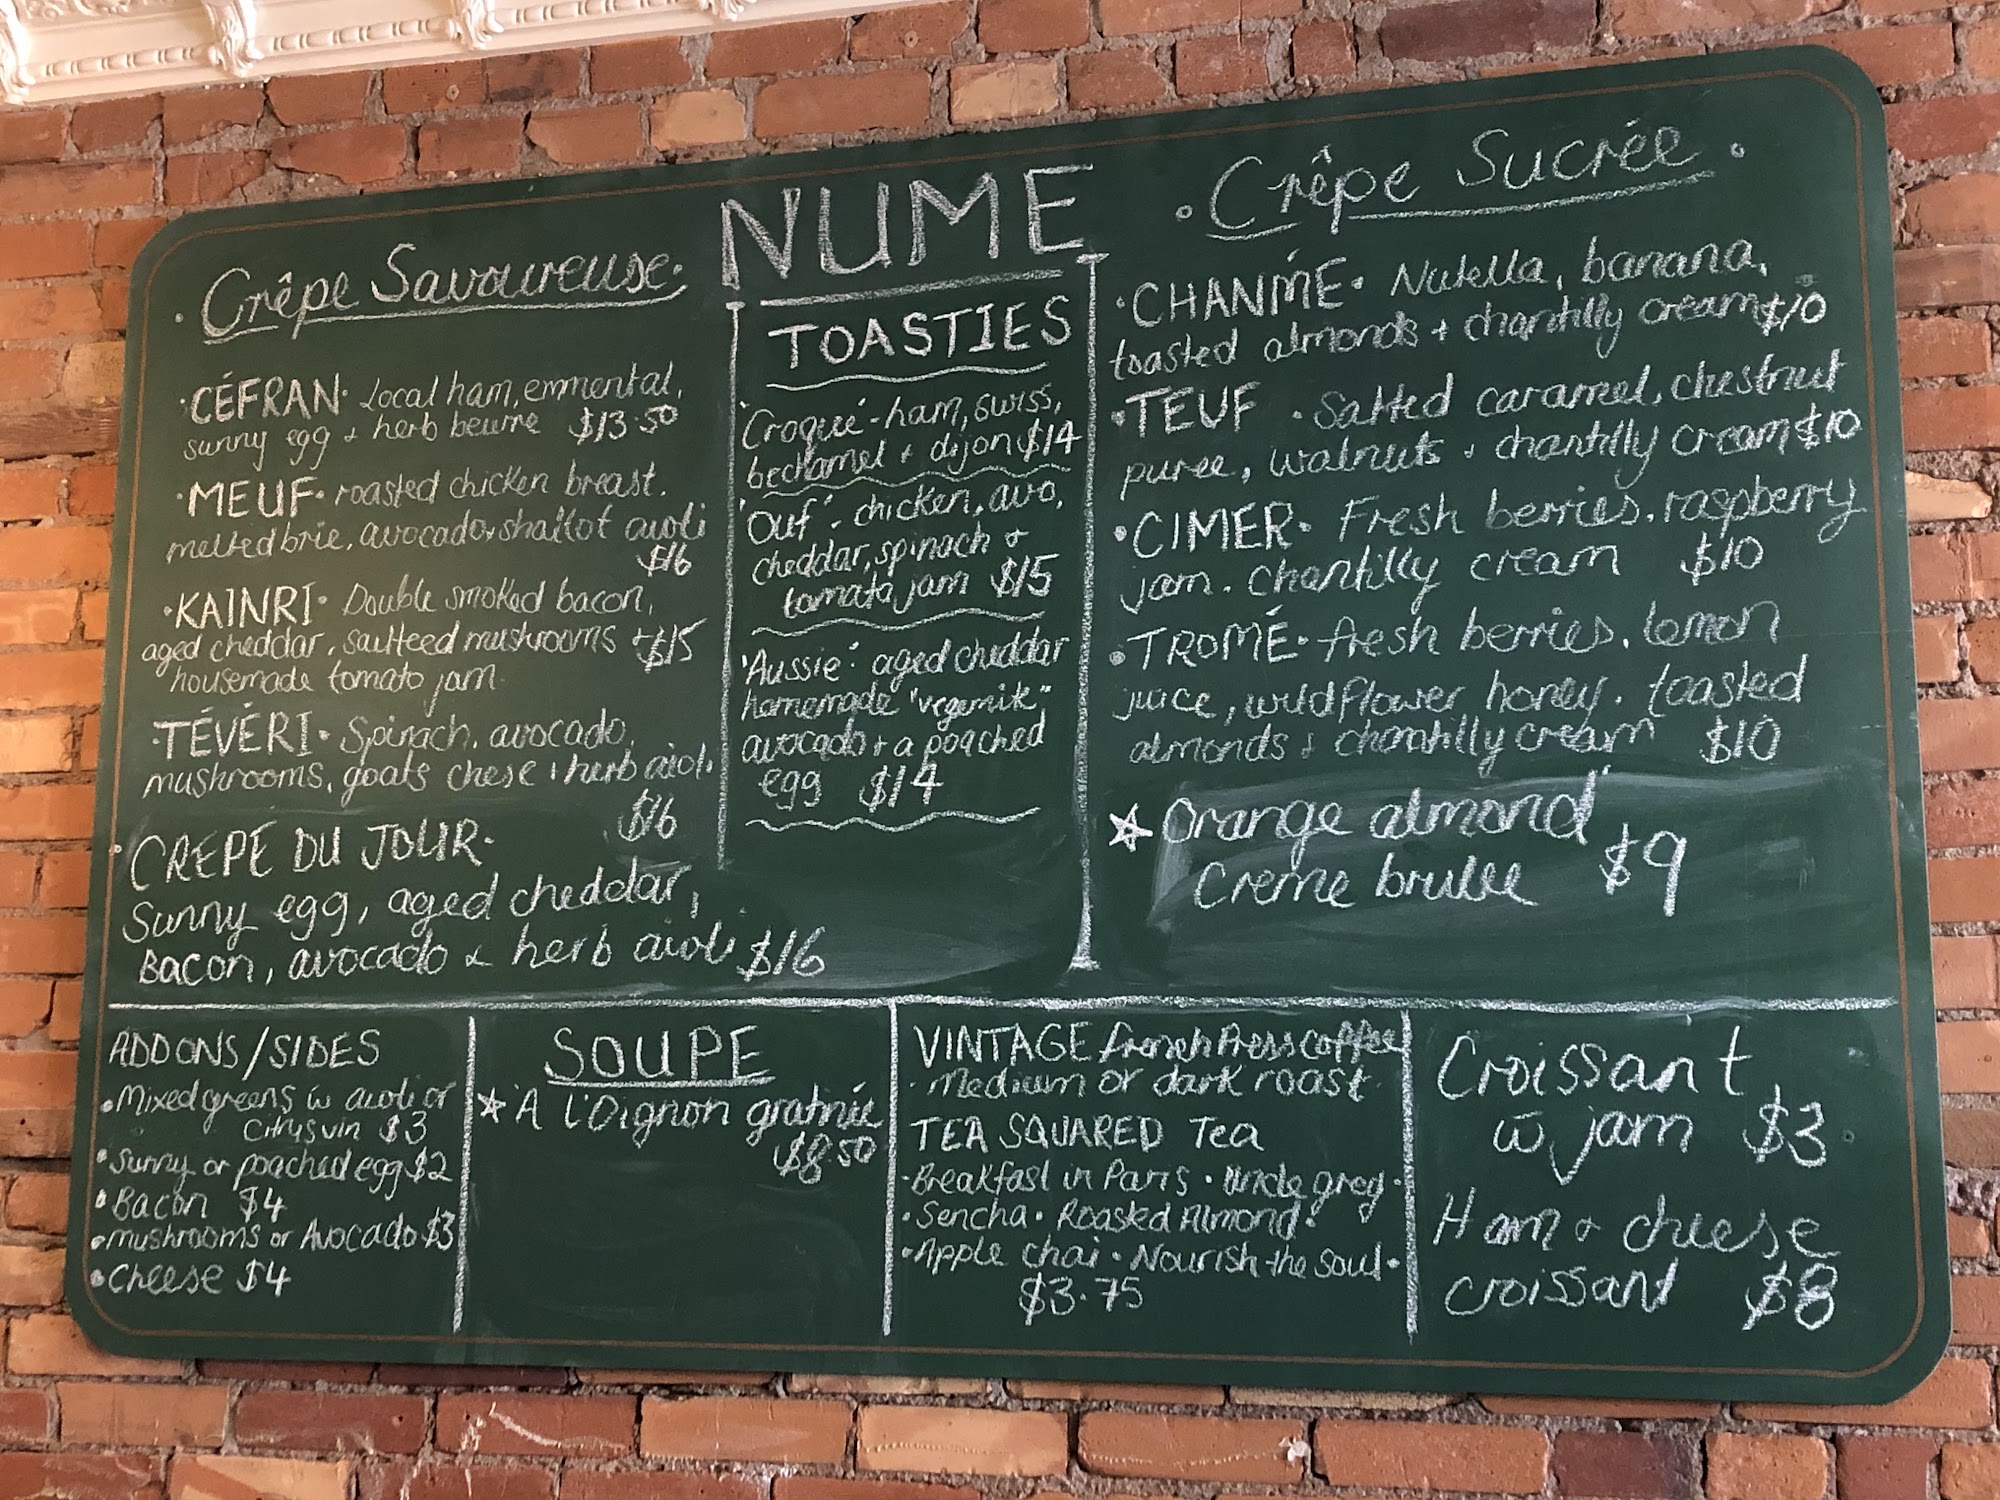 NUME
· Crêpe Savoureuse ·
· CÉFRAN · Local ham, emmental,
sunny egg + herb beurre $13.50
· MEUF · roasted chicken breast.
melted brie, avocado + shallot aioli
$16
· KAINRI · Double smoked bacon,
aged cheddar, sautteed mushrooms + $15
housemade tomato jam
· TÉVÉRI · Spinach, avocado,
mushrooms, goats chese + herb aioli
$16
· CREPE DU JOUR ·
Sunny egg, aged cheddar,
Bacon, avocado & herb aioli $16
TOASTIES
'Croque' - ham, swiss,
bechamel + dijon $14
'Ouf' - chicken, avo,
cheddar, spinach +
tomato jam $15
'Aussie' - aged cheddar
homemade "vegemik"
avocado + a poached
egg $14
· Crêpe Sucrée ·
· CHANMÉ · Nutella, banana,
toasted almonds + chantilly cream $10
· TEUF · Salted caramel, chestnut
puree, walnuts + chantilly cream $10
· CIMER · Fresh berries, raspberry
jam. Chantilly cream $10
· TROMÉ · fresh berries, lemon
juice, wildflower honey, toasted
almonds + chantilly cream $10
☆ Orange almond
Creme brulee $9
ADDONS/SIDES
· Mixed greens w̄ aioli or
citrus vin $3
· Sunny or poached egg $2
· Bacon $4
· mushrooms or Avocado $3
· Cheese $4
SOUPE
☆ A l'Oignon gratinée
$8.50
VINTAGE French Press coffee
· Medium or dark roast ·
TEA SQUARED Tea
· Breakfast in Paris · Uncle grey ·
· Sencha · Roasted Almond ·
· Apple chai · Nourish the Soul ·
$3.75
Croissant
w̄ jam $3
Ham & cheese
croissant $8